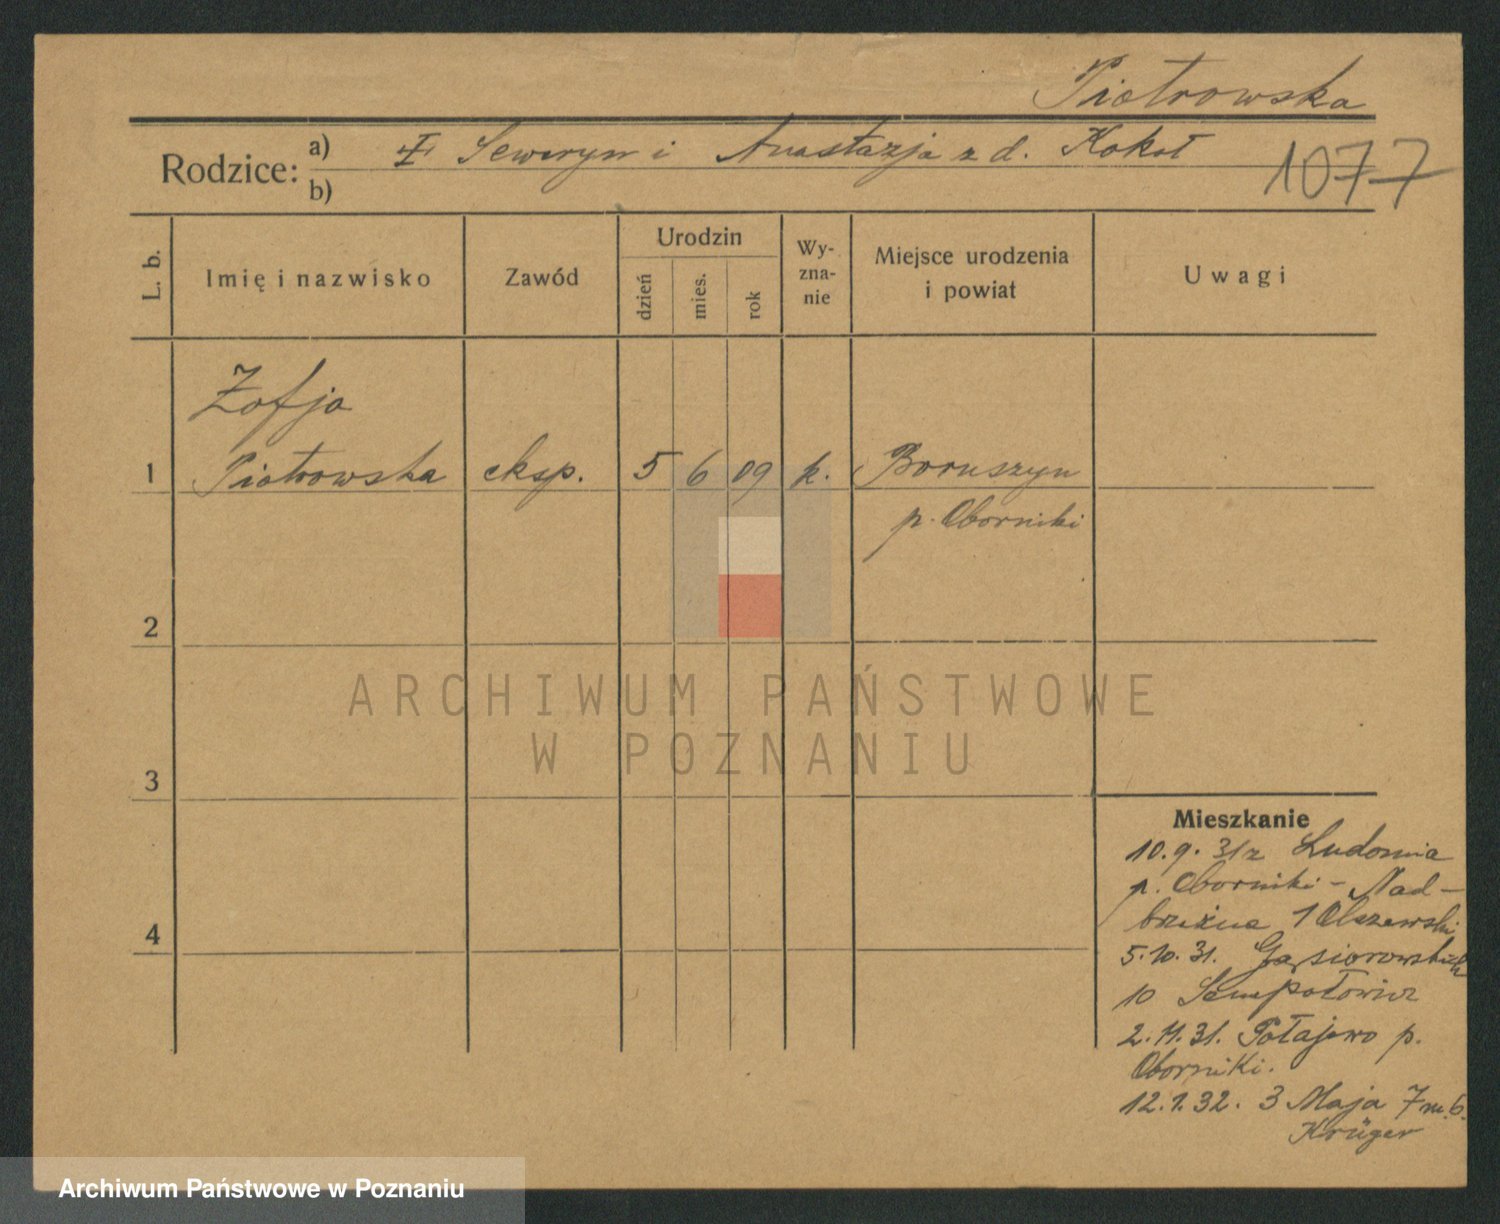 Piotrowska
Rodzice: a) Seweryn i Anastazja z d. Kokot
b)
1077
L. b.
Imię i nazwisko
Zawód
Urodzin
dzień
mies.
rok
Wy-
zna-
nie
Miejsce urodzenia
i powiat
Uwagi
Zofja
1 Piotrowska eksp. 5 6 09 k. Boruszyn
p. Oborniki
2
3
4
Mieszkanie
10.9.31 z Ludomia
p. Oborniki - Nad-
brzeżna 1 Olszewski
5.10.31. Gąsiorowskich
10 Sempołowicz
2.11.31. Połajewo p.
Oborniki.
12.1.32. 3 Maja 7 m. 6.
Krüger
ARCHIWUM PAŃSTWOWE
W POZNANIU
Archiwum Państwowe w Poznaniu